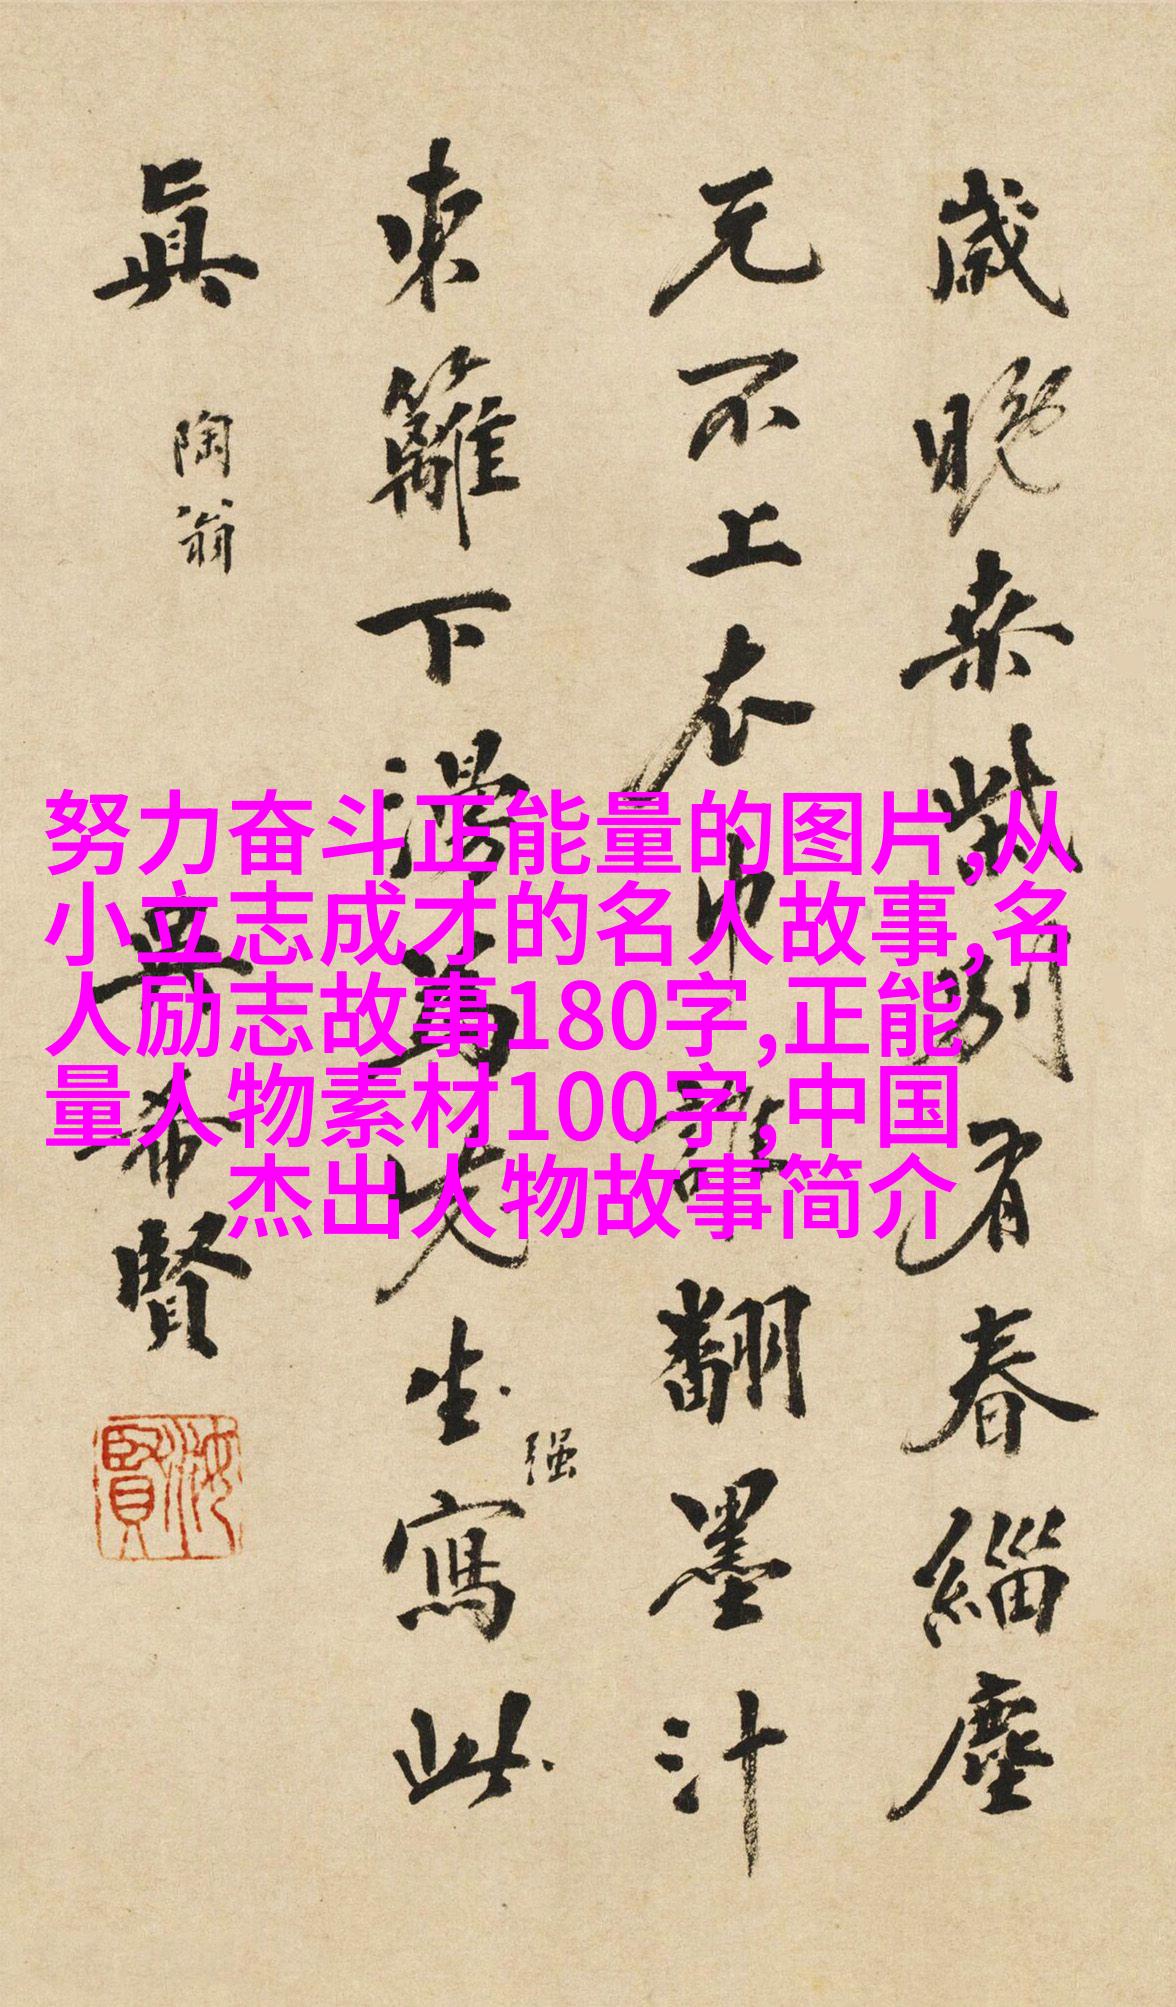 努力奋斗正能量的图片,从
小立志成才的名人故事,名
人励志故事180字,正能
量人物素材100字,中国
杰出人物故事简介
歲晚桑柴別有春緇塵
元不上衣巾誰翻墨汁
東籬下漫為先生寫此
强
真
陶翁
吳希賢
汝賢